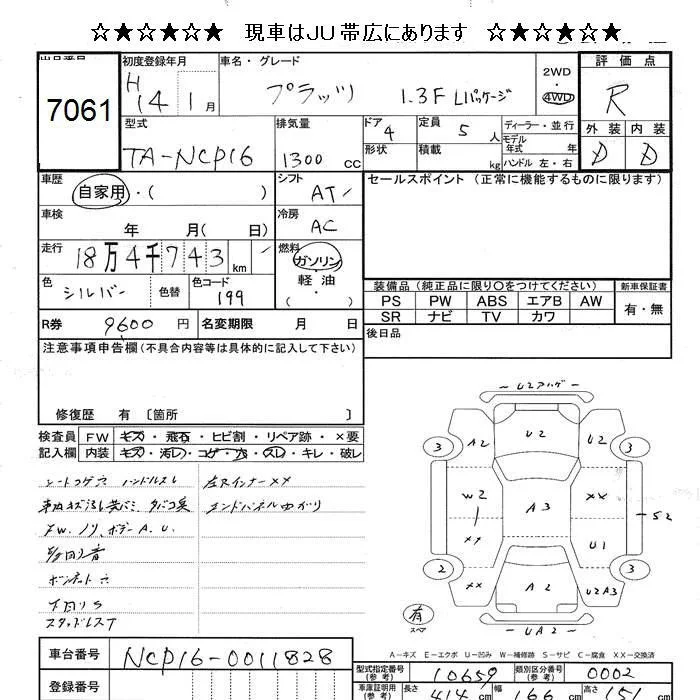 ☆★☆★☆★☆ 現車はJU帯広にあります ☆★☆★☆★☆
初度登録年月 車名・グレード 2WD 評価点
7061 H14 1月 プラッツ 1.3F Lパッケージ 4WD R
型式 排気量 ドア 4 定員 5 人 ディーラー・並行 外装 内装
TA-NCP16 1300 cc 形状 積載 kg モデル年式 年 ハンドル 左・右 D D
車歴 自家用・( ) シフト AT セールスポイント (正常に機能するものに限ります)
車検 年 月( 日) 冷房 AC
走行 18万4千743km 燃料 ガソリン
軽・油
色 シルバー 色替 色コード 199 ( ) 装備品(純正品に限り○をつけてください) 新車保証書
PS PW ABS エアB AW 有・無
R券 9600円 名変期限 月 日 SR ナビ TV カワ
注意事項申告欄(不具合内容等は具体的に記入して下さい) 後日品
修復歴 有 〔箇所 〕
検査員 FW キズ・飛石・ヒビ割・リペア跡・×要
記入欄 内装 キズ・汚レ・コゲ・穴・スレ・キレ・破レ
シートコゲ穴 ハンドルスレ 左RインナーXX
エンドパネルゆがり
FW.ノリ、ボデーA.U.
ボンネット穴
下回りS
スタッドレスT
U2アハゲ
3 A2 U2 U2 3
W2 A3 XX S2
XX U1
2 XX A2 U2A3 3
有 スペア UA2
A-キズ E-エクボ U-凹み W-補修跡 S-サビ C-腐食 XX-交換済
車台番号 NCP16-0011828
型式指定番号(参考) 10659 類別区分番号(参考) 0002
登録番号 車庫証明用(参考) 長さ 414 cm 幅 166 cm 高さ 151 cm